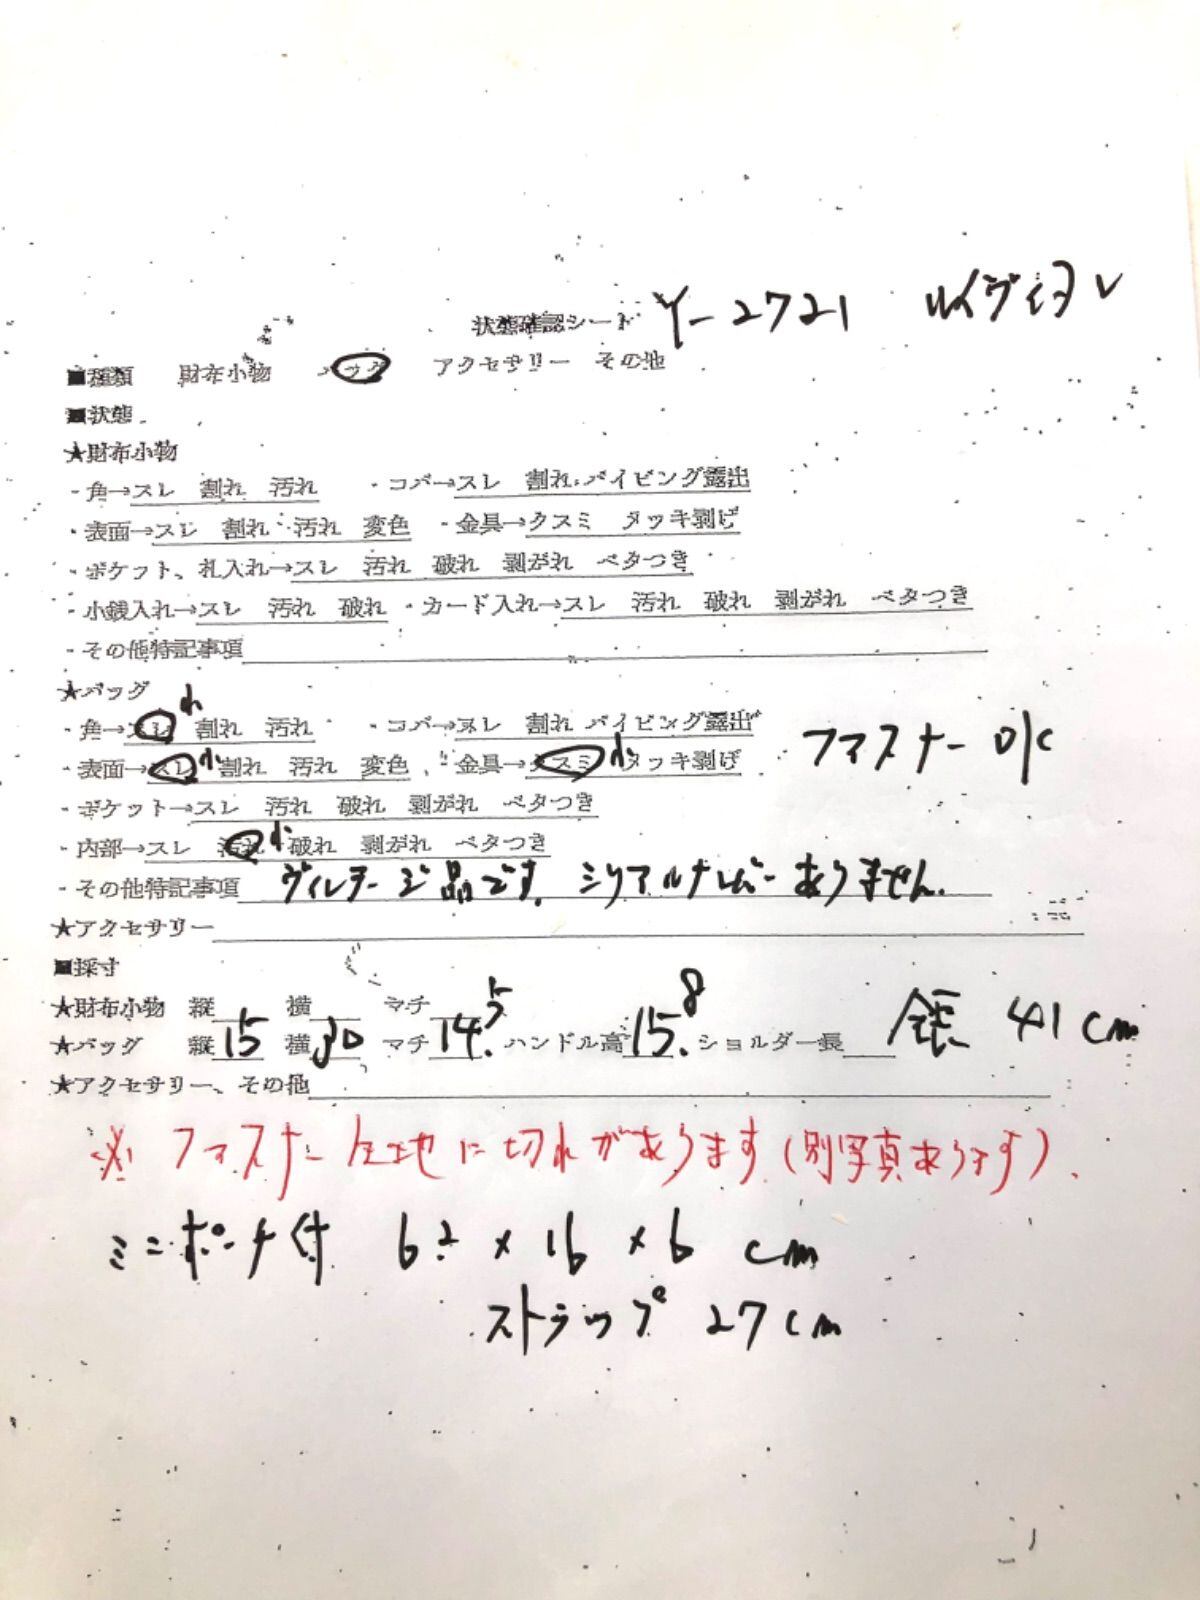 状態確認シート Y-2721 ルイヴィトン
■種類 財布小物 バッグ アクセサリー その他
■状態
★財布小物
・角→スレ 割れ 汚れ ・コバ→スレ 割れ パイピング露出
・表面→スレ 割れ 汚れ 変色 ・金具→クスミ タッキ剥げ
・ポケット、札入れ→スレ 汚れ 破れ 剥がれ ベタつき
・小銭入れ→スレ 汚れ 破れ ・カード入れ→スレ 汚れ 破れ 剥がれ ベタつき
・その他特記事項
★バッグ
・角→スレ小 割れ 汚れ ・コバ→スレ 割れ パイピング露出
・表面→スレ小 割れ 汚れ 変色 ・金具→クスミ小 タッキ剥げ ファスナーOK
・ポケット→スレ 汚れ 破れ 剥がれ ベタつき
・内部→スレ 汚れ小 破れ 剥がれ ベタつき
・その他特記事項 ヴィンテージ品です。シリアルナンバーありません。
★アクセサリー
■採寸
★財布小物 縦 横 マチ
★バッグ 縦15 横30 マチ14.5 ハンドル高15.8 ショルダー長 全長 41cm
★アクセサリー、その他
※ ファスナー生地に切れがあります(別写真あります)。
ミニポーチ付 6.2×16×6 cm
ストラップ 27cm